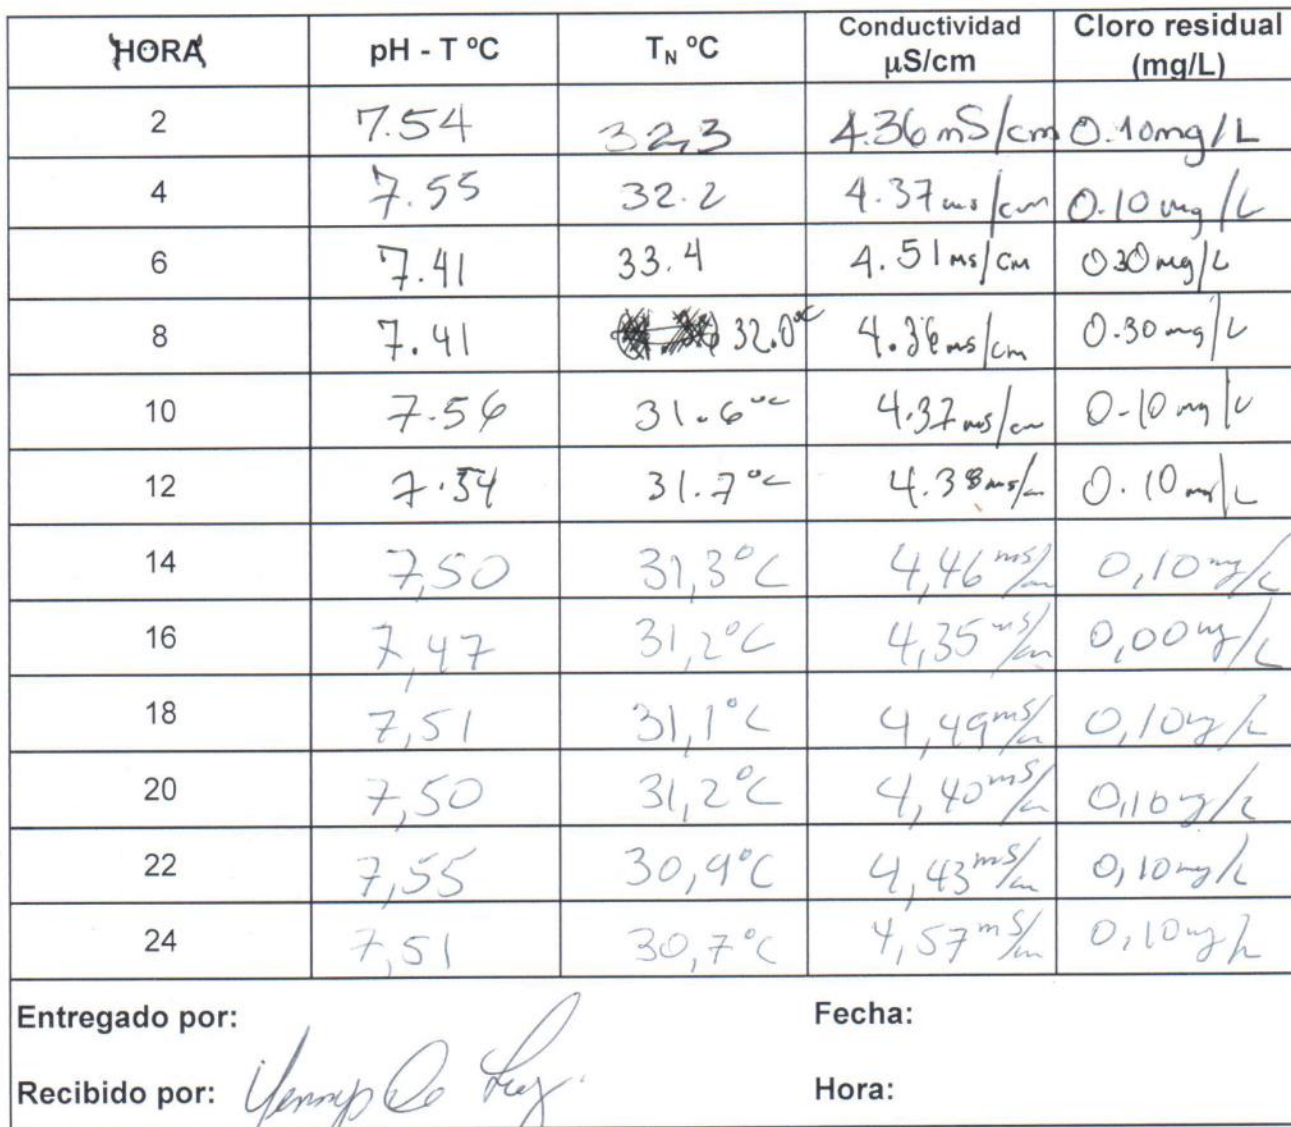 HORA pH - T ºC T_N ºC Conductividad µS/cm Cloro residual (mg/L)
2 7.54 32,3 4.36 mS/cm 0.10mg/L
4 7.55 32.2 4.37 ms/cm 0.10 mg/L
6 7.41 33.4 4.51 ms/cm 0.30 mg/L
8 7.41 32.0°C ms/cm 0.30 mg/L
10 7.56 31.6°C 4.37 ms/cm 0.10 mg/L
12 7.54 31.7°C 4.38 ms/cm 0.10 mg/L
14 7,50 31,3°C 4,46 ms/cm 0,10 mg/L
16 7,47 31,2°C 4,35 ms/cm 0,00 mg/L
18 7,51 31,1°C 4,49 ms/cm 0,10 mg/L
20 7,50 31,2°C 4,40 ms/cm 0,10 mg/L
22 7,55 30,9°C 4,43 ms/cm 0,10 mg/L
24 7,51 30,7°C 4,57 ms/cm 0,10 mg/L
Entregado por: Fecha:
Recibido por: Hora: